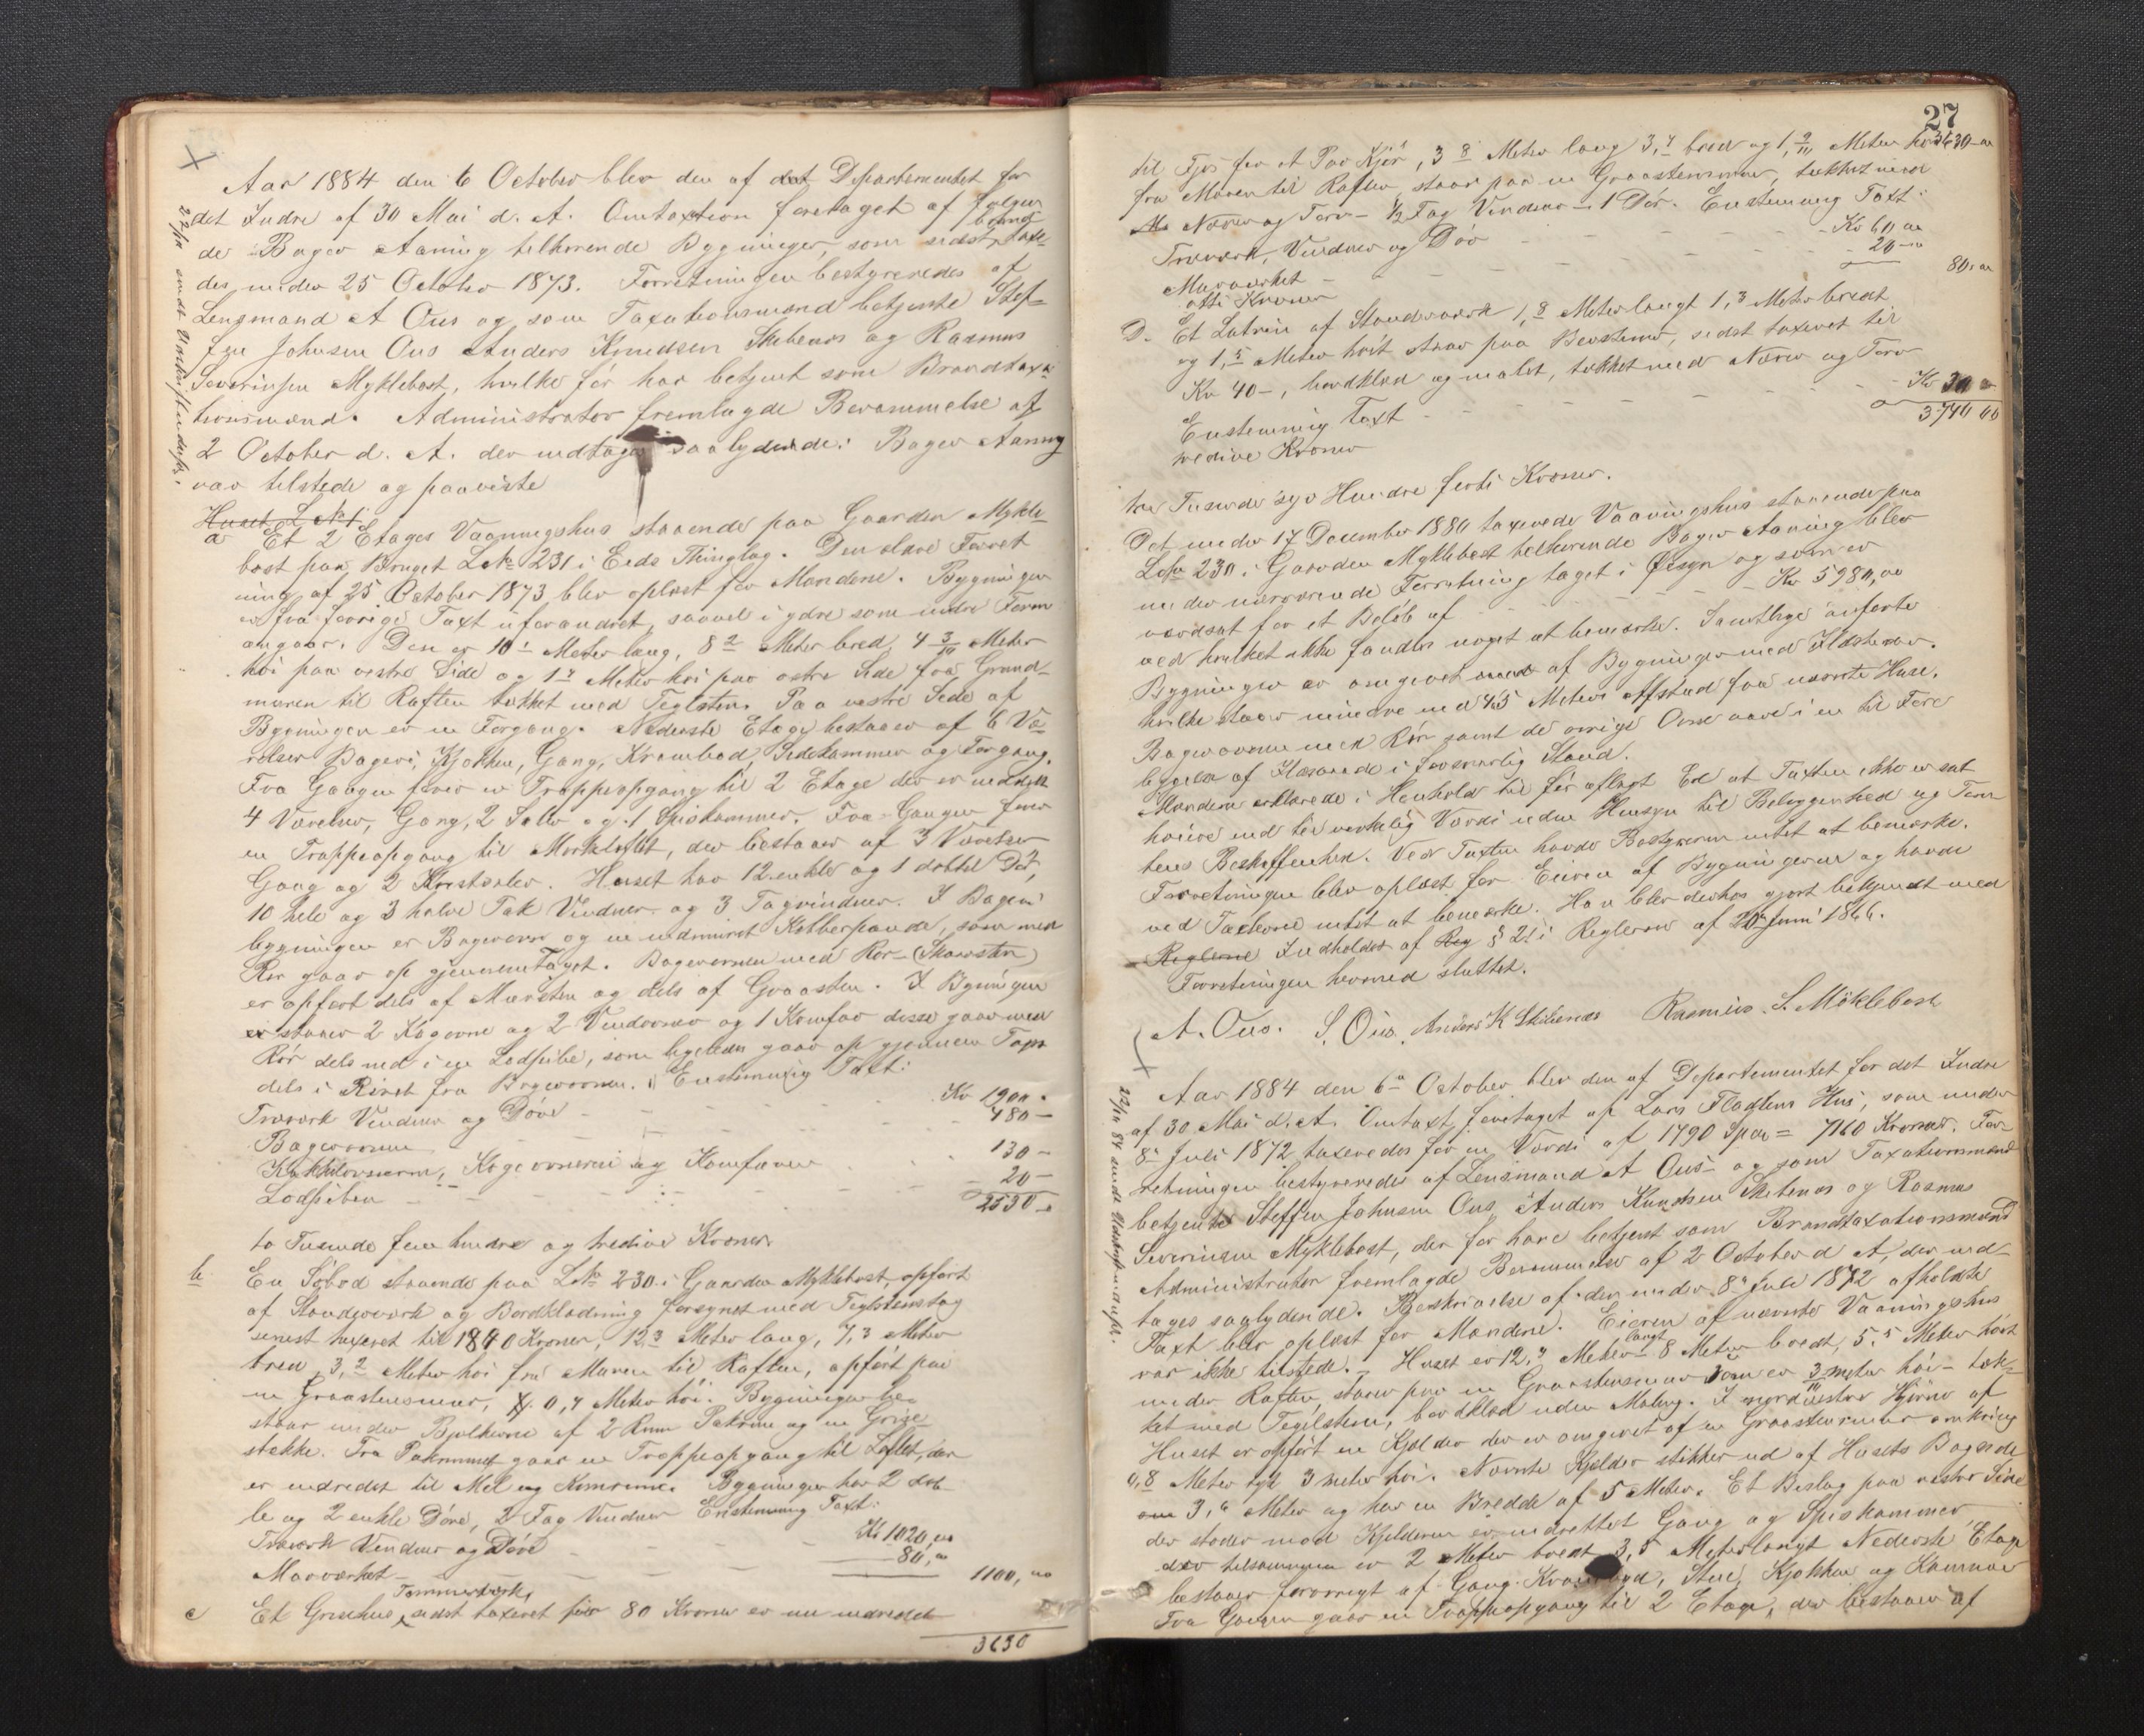 Aar 1884 den 6 October blev den af det Departementet for
det Indre af 30 Mai d. A. Omtaxtion foretaget af følgen
de Bager Aaning tilhørende Bygninger, som sidst brand taxe-
des under 25 October 1873. Forretningen bestyreredes af
Lensmand A Ous og som Taxationsmænd betjente Stef-
fen Johnsen Ous Anders Knudsen Skibenes og Rasmus
Severinsen Myklebost, hvilke før har betjent som Brandtaxa
tionsmænd. Administrator fremlagde Berammelse af
2 October d. A. der indtages saalydende: Bager Aaning
var tilstede og paaviste
Huset L No 1
a Et 2 Etages Vaaningshus staaende paa Gaarden Mykle-
bost paa Bruget L No 231 i Eids Thinglag. Den olave Forret
ning af 25 October 1873 blev oplæst for Mændene. Bygningen
er fra forrige Taxt uforandret, saavel i ydre som indre Form
angaar. Den er 10 Meter lang, 8 2 Meter bred, 4 3/10 Meter
høi paa vestre Side og Meter høi paa østre Side fra Grund-
muren til Raften tækket med Teglsten. Paa vestre Side af
Bygningen er en Forgang. Nederste Etage bestaaer af 6 Væ-
relser Bageri, Kjøkken, Gang, Krambod, Sidekammer og Forgang.
Fra Gangen fører en Trappeopgang til 2 Etage der er inddelt
4 Værelser, Gang, 2 Saler og 1 Spiskammer. Fra Gangen fører
en Trappeopgang til Mørkloftet, der bestaaer af 3 Værelser
Gang og 2 Huset har 12 enkle og 1 dobbel Dør,
10 hele og 3 halve Fak Vinduer og 3 Tagvinduer. I Bageri
bygningen er Bagerovn og en indmuret Kobberpande, som med
Rør gaar op gjennem Taget. Bagerovnen med Rør (Skorsten)
er opført dels af Mursten og dels af Graasten. I Bygningen
er staaer 2 Kogeovne og 2 Vindovner og 1 Komfur disse gaar med
Rør dels ind i en Lodpibe, som ligeledes gaar op gjennem Taget
dels i Røret fra Bagerovnen. Enstemmig Taxt:
Træverk Vinduer og Døre - - Kr 1900.
Bagerovnen - - 480 -
Kakkelovnerne, Kogeovnerne og Komfuren 130 -
Lodpiben - - 20 -
2530 -
to Tusinde fem hundre og tredive Kroner
b. En Søbod staaende paa L No 230 i Gaarden Myklebost, opført
af Standerværk og Bordklædning forsynet med Teglstenstag
senest taxeret til 1840 Kroner, 12,3 Meter lang, 7,3 Meter
bred, 3,2 Meter høi fra Muren til Raften, opført paa
en Graastensmur, 0,7 Meter høi. Bygningen be-
staar under Bjelkerne af 2 Rum Pakrum og en Grise
stakke. Fra Pakrummet gaar en Trappeopgang til Loftet, der
er indredet til Mel og Kornrum. Bygningen har 2 dob-
le og 2 enkle Døre, 2 Fag Vinduer Enstemmig Taxt:
Træverk Vinduer og Døre - - Kr 1020,00
Murværket - - 80,00 1100,00
c Et Grisehus Tømmerværk, sidst taxeret for 80 Kroner er nu indredet
3630
22/10 sendt Udskrift
27
til Fjøs for et Par Kjør, 3 8 Meter lang 3,7 bred og 1, 9/10 Meter høi 3630-00
fra Muren til Raften, staar paa en Graastensmur, tækket med
Næver og Torv - 1/2 Fag Vinduer - 1 Dør. Enstemmig Taxt:
Træværk, Vinduer og Dør - - Kr 60 00
Murværket - - 20-00
80,00
otti Kroner
D. Et Latrin af Standværk 1,8 Meter langt 1,3 Meter bredt
og 1,5 Meter høit staar paa sidst taxeret til
Kr 40-, bordklæd og malet, tækket med Næver og Torv
Enstemmig Taxt - - Kr 30 00
3740 00
tredive Kroner
tre Tusinde syv Hundre firti Kroner.
Det under 17 December 1880 taxerede Vaaningshus staaende paa
L No 230 i Gaarden Myklebost tilhørende Bager Aaning blev
under nærværende Forretning taget i Øiesyn og som er
værdsat for et Beløb af - - Kr 5980,00
ved hvilket ikke fandtes noget at bemærke. Samtlige anførte
Bygninger er omgivet med af Bygninger med Ildsteder,
hvilke staar mindre end 45 Meters Afstand fra nævnte Huse.
Bagerovnen med Rør samt de øvrige Ovne vare i en til Fore
byggelse af Ildsvaade i forsvarlig Stand.
Mændene erklærede i Henhold til før aflagt Ed at Taxten ikke er sat
høiere end til virkelig Værdi uden Hensyn til Beliggenhed og Tom-
tens Beskaffenhed. Ved Taxten havde Bestyreren intet at bemærke.
Forretningen blev oplæst for Eieren af Bygningerne og havde
ved Taxterne intet at bemærke. Han blev derhos gjort bekjendt med
Reglerne Indholdet af Reg § 21 i Reglerne af 20 Juni 1866.
Forretningen hermed sluttet.
A. Ous. S. Ous. Anders K Skibenes Rasmus S. Möklebost
Aar 1884 den 6te October blev den af Departementet for det Indre
af 30 Mai d. A. Omtaxt foretaget af Lars Flodtens Hus, som under
8de Juli 1872 taxeredes for en Værdi af 1790 Spdr = 7160 Kroner. For-
retningen bestyreredes af Lensmand A Ous og som Taxationsmænd
betjente Steffen Johnsen Ous Anders Knudsen Skibenes og Rasmus
Severinsen Myklebost, der før have betjent som Brandtaxationsmænd
Administrator fremlagde Berammelse af 2 October d A, der ind-
tages saalydende. Beskrivelse af den under 8de Juli 1872 afholdte
Taxt blev oplæst for Mændene. Eieren af nævnte Vaaningshus
var ikke tilstede. Huset er 12,7 Meter langt 8 Meter bredt, 5,5 Meter høit
under Raften, staar paa en Graastensmur som er 3/10 meter høi - tæk-
ket med Teglsten, bordklæd uden Maling. I nordvestre Hjørne af
Huset er opført en Kjælder der er omgivet af en Graastensmur omkring
0,8 Meter tyk 3 meter høi. Nævnte Kjelder stikker ud af Husets Bagside
3,6 Meter og har en Bredde af 5 Meter. Et Beslag paa vestre Side
der støder mod Kjelderen er indrettet Gang og Spiskammer
der tilsammen er 2 Meter bredt 3,5 Meter langt Nederste Etage
bestaaer forøvrigt af Gang Krambod, Stue, Kjøkken og Kammer
Fra Gangen gaar en Trappeopgang til 2 Etage, der bestaaer af
22/10 84 sendt Udskrift